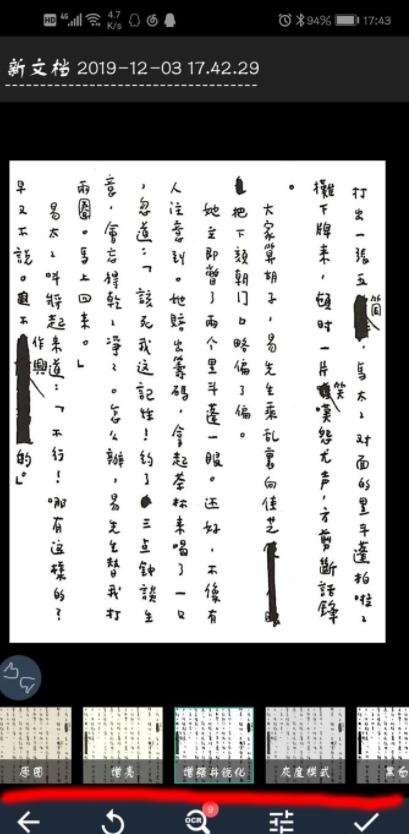 HD 4G 4.7 K/s 94% 17:43
新文档 2019-12-03 17.42.29
打出一張五筒，馬太〻对面的黑斗蓬拍啦〻
攤下牌来，頓时一片笑嘆怨尤声，方剪斷話鋒
。
大家算胡子，易先生乘乱裏向佳芝
把下頦朝门口略偏了偏。
她立即瞥了兩个黑斗蓬一眼。还好，不像有
人注意到。她賠出籌碼，拿起茶杯来喝了一口
，忽道：「該死我这記性！约了三点钟談生
意，會忘得乾〻凈〻。怎么辦，易先生替我打
兩圈。馬上回来。」
易太〻叫將起来道：「不行！哪有这樣的？
早又不說。不作興的。」
原图 增亮 增强并锐化 灰度模式 黑白
OCR 9